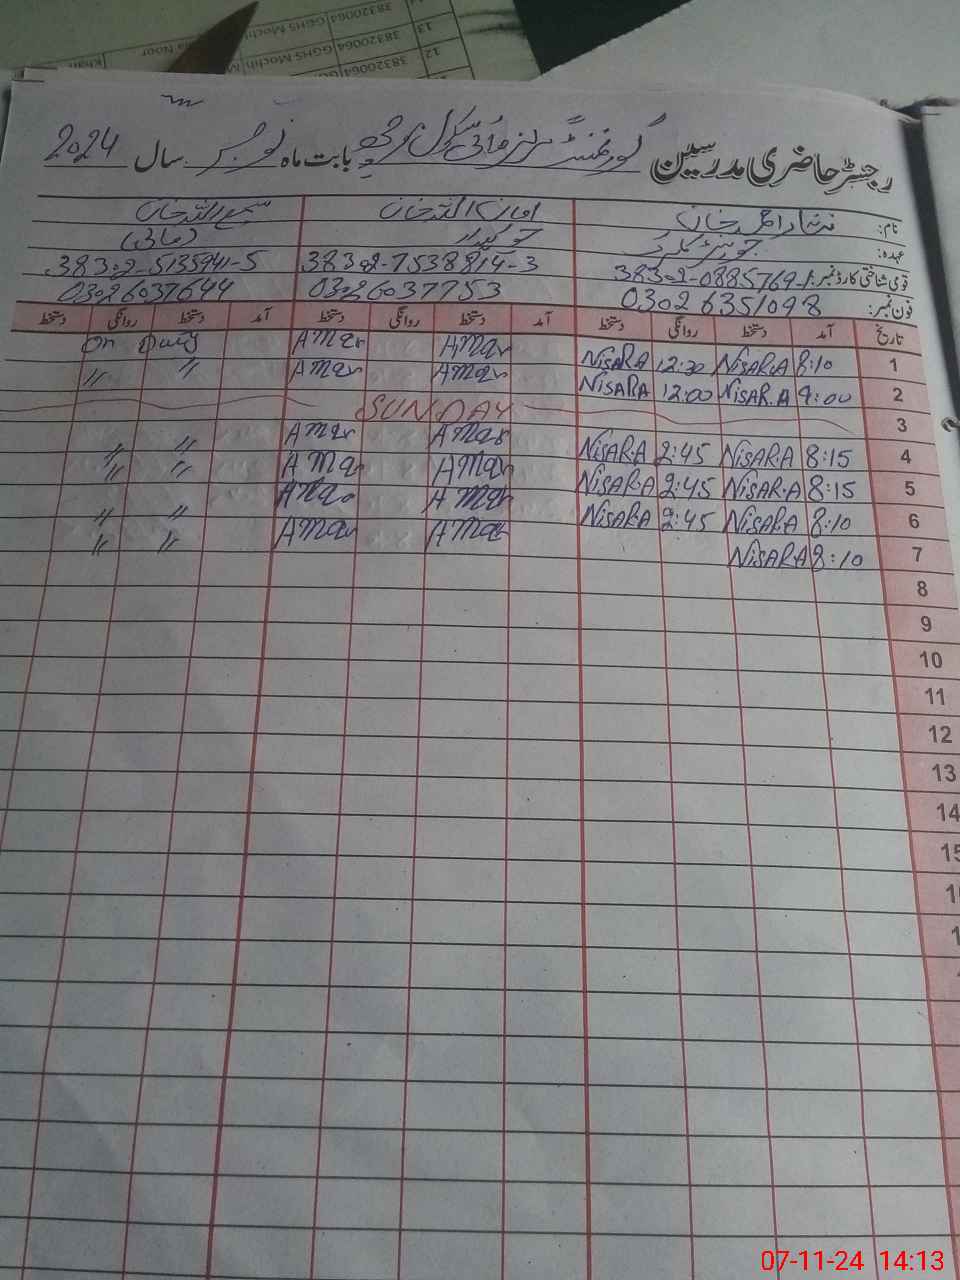 38320064 GGHS Mochh
38320064 GGHS Mochh
12
13
رجسٹر حاضری مدرسین گورنمنٹ گرلز ہائی سکول موچھ بابت ماہ نومبر سال 2024
نام: نثار احمد خان امان اللہ خان سمیع اللہ خان
عہدہ: جونیئر کلرک چوکیدار (مالی)
قومی شناختی کارڈ نمبر: 38302-0885769-1 38302-7538814-3 38302-5135941-5
فون نمبر: 03026351098 03026037753 03026037644
تاریخ آمد دستخط روانگی دستخط آمد دستخط روانگی دستخط آمد دستخط روانگی دستخط
1 8:10 NiSAR.A 12:30 NiSARA AMar AMar On Duty
2 9:00 NiSAR.A 12:00 NiSARA AMar AMar 〃 〃
3 SUNDAY
4 8:15 NiSARA 2:45 NiSAR.A AMar AMar 〃 〃
5 8:15 NiSAR.A 2:45 NiSAR.A AMar AMar 〃 〃
6 8:10 NiSARA 2:45 NiSAR.A AMar AMar 〃 〃
7 8:10 NiSARA AMar AMar 〃 〃
8
9
10
11
12
13
14
15
07-11-24 14:13